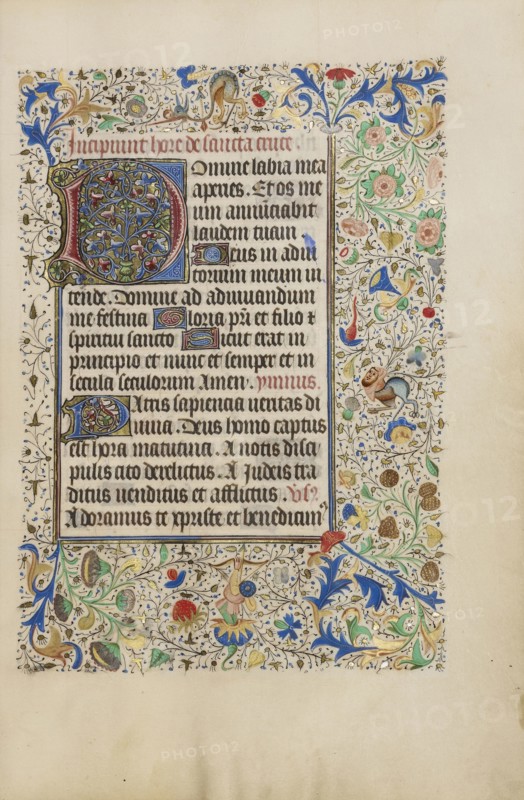 Incipiunt hore de sancta cruce
Domine labia mea
aperies. Et os me
um annūciabit
laudem tuam
Deus in adiu
torium meum in
tende. Domine ad adiuuandum
me festina Gloria pr̄i et filio ⁊
spiritui sancto Sicut erat in
principio et nunc et semper et in
secula seculorum Amen. ymnus.
Patris sapiencia ueritas di
uina. Deus homo captus
est hora matutina. A notis disci
pulis cito derelictus. A Judeis tra
ditus uenditus et afflictus.
Adoramus te xpriste et benedicim
PHOTO12
PHOTO12
PHOTO12